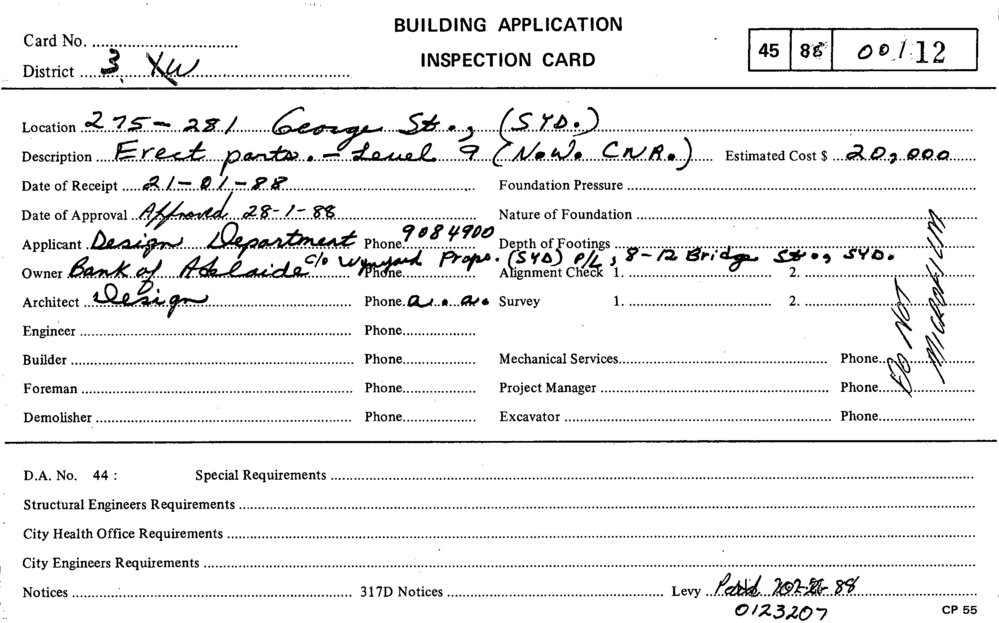 BUILDING APPLICATION
INSPECTION CARD
Card No.
District 3 XW
45 88 00/12
Location 275-281 George St., (SYD.)
Description Erect partn. - Level 9 (N.W. CNR.) Estimated Cost $ 20,000
Date of Receipt 21-01-88 Foundation Pressure
Date of Approval Approved 28-1-88 Nature of Foundation
Applicant Design Department Phone 9084900 Depth of Footings
Owner Bank of Adelaide c/o Wynyard Props. (SYD) P/L, 8-12 Bridge St., SYD. Phone Alignment Check 1. 2.
Architect Design Phone a.a. Survey 1. 2.
Engineer Phone
Builder Phone Mechanical Services Phone
Foreman Phone Project Manager Phone
Demolisher Phone Excavator Phone
DO NOT
MICROFILM
D.A. No. 44 : Special Requirements
Structural Engineers Requirements
City Health Office Requirements
City Engineers Requirements
Notices 317D Notices Levy Paid 88
0123207
CP 55